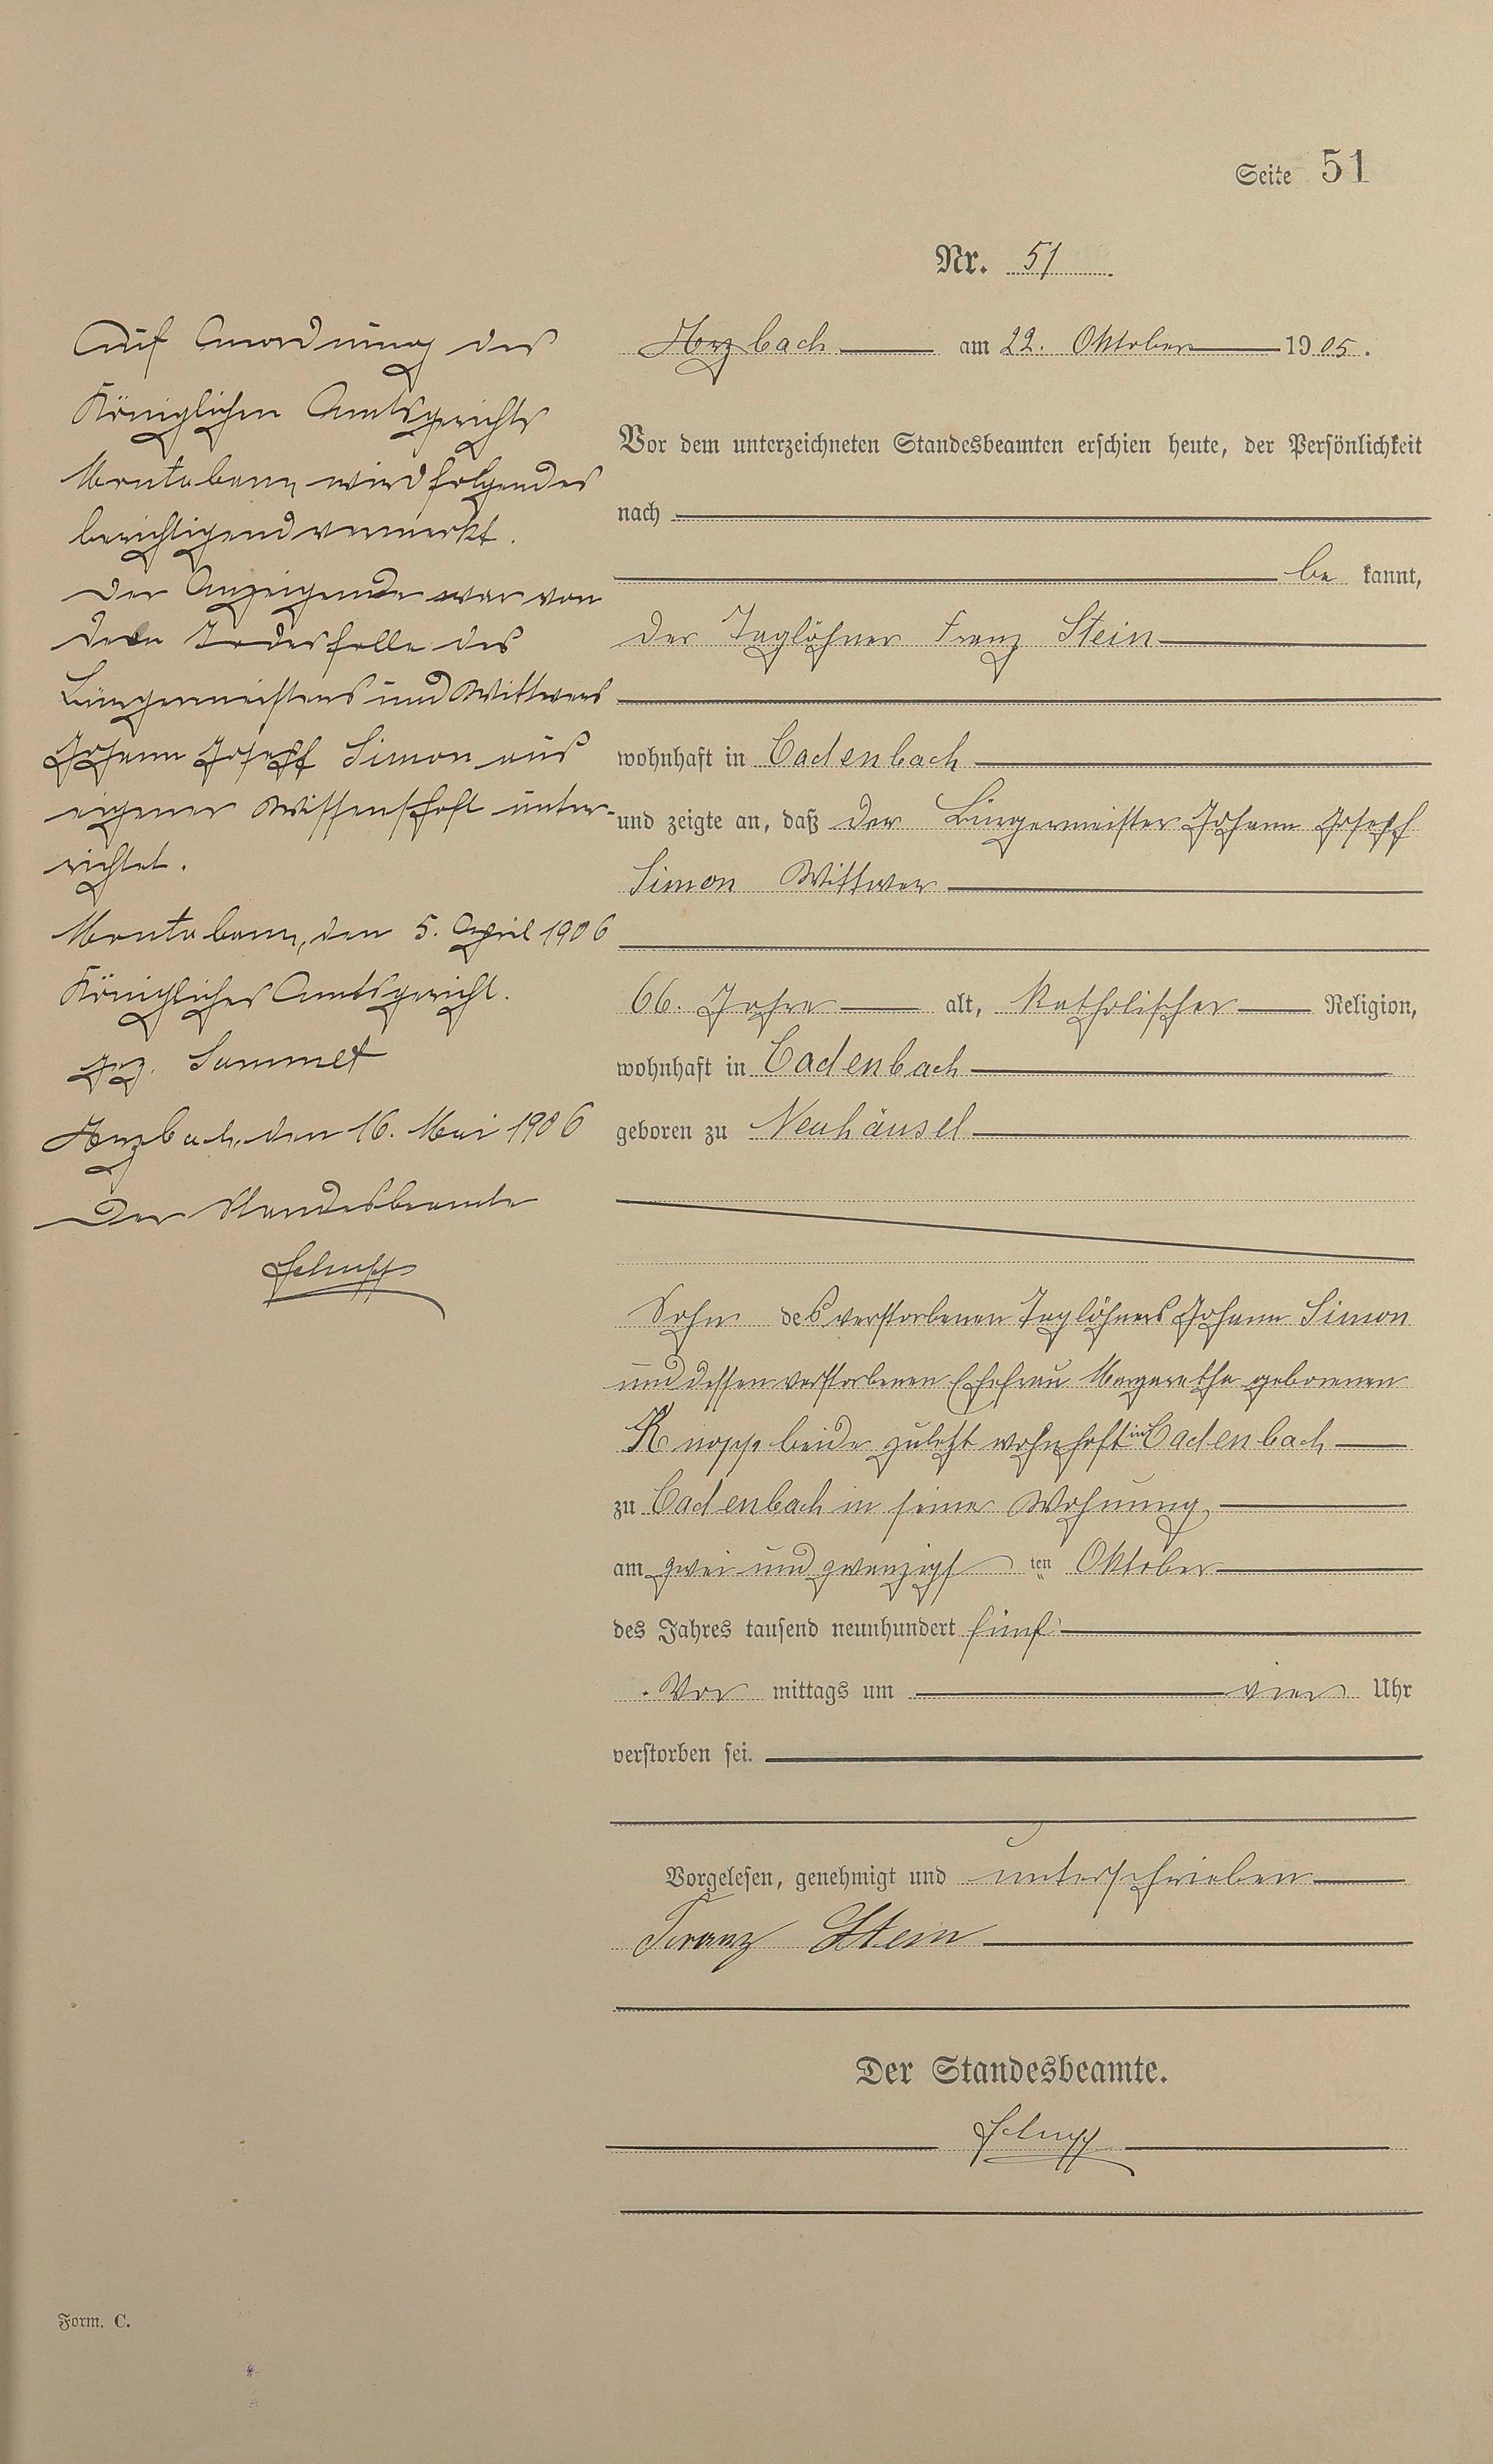 Seite 51
Nr. 51
Auf Anordnung des
Königlichen Amtsgerichts
Montabaur, wird folgendes
berichtigend vermerkt.
Der Anzeigende war von
dem Todesfalle des
Bürgermeisters und Wittwers
Johann Joseph Simon aus
eigener Wissenschaft unter-
richtet.
Montabaur, den 5. April 1906
Königliches Amtsgericht.
gez. Sammet
Arzbach, den 16. Mai 1906
Der Standesbeamte
Arzbach am 22. Oktober 1905.
Vor dem unterzeichneten Standesbeamten erschien heute, der Persönlichkeit
nach
be kannt,
der Taglöhner Franz Stein
wohnhaft in Cadenbach
und zeigte an, daß der Bürgermeister Johann Joseph
Simon Wittwer
66. Jahre alt, katholischer Religion,
wohnhaft in Cadenbach
geboren zu Neuhäusel
Sohn des verstorbenen Taglöhners Johann Simon
und dessen verstorbenen Ehefrau Margaretha geborenen
Knopp beide zuletzt wohnhaft in Cadenbach
zu Cadenbach in seiner Wohnung
am zwei und zwanzigs ten Oktober
des Jahres tausend neunhundert fünf
Vor mittags um vier Uhr
verstorben sei.
Vorgelesen, genehmigt und unterschrieben
Franz Stein
Der Standesbeamte.
Form. C.